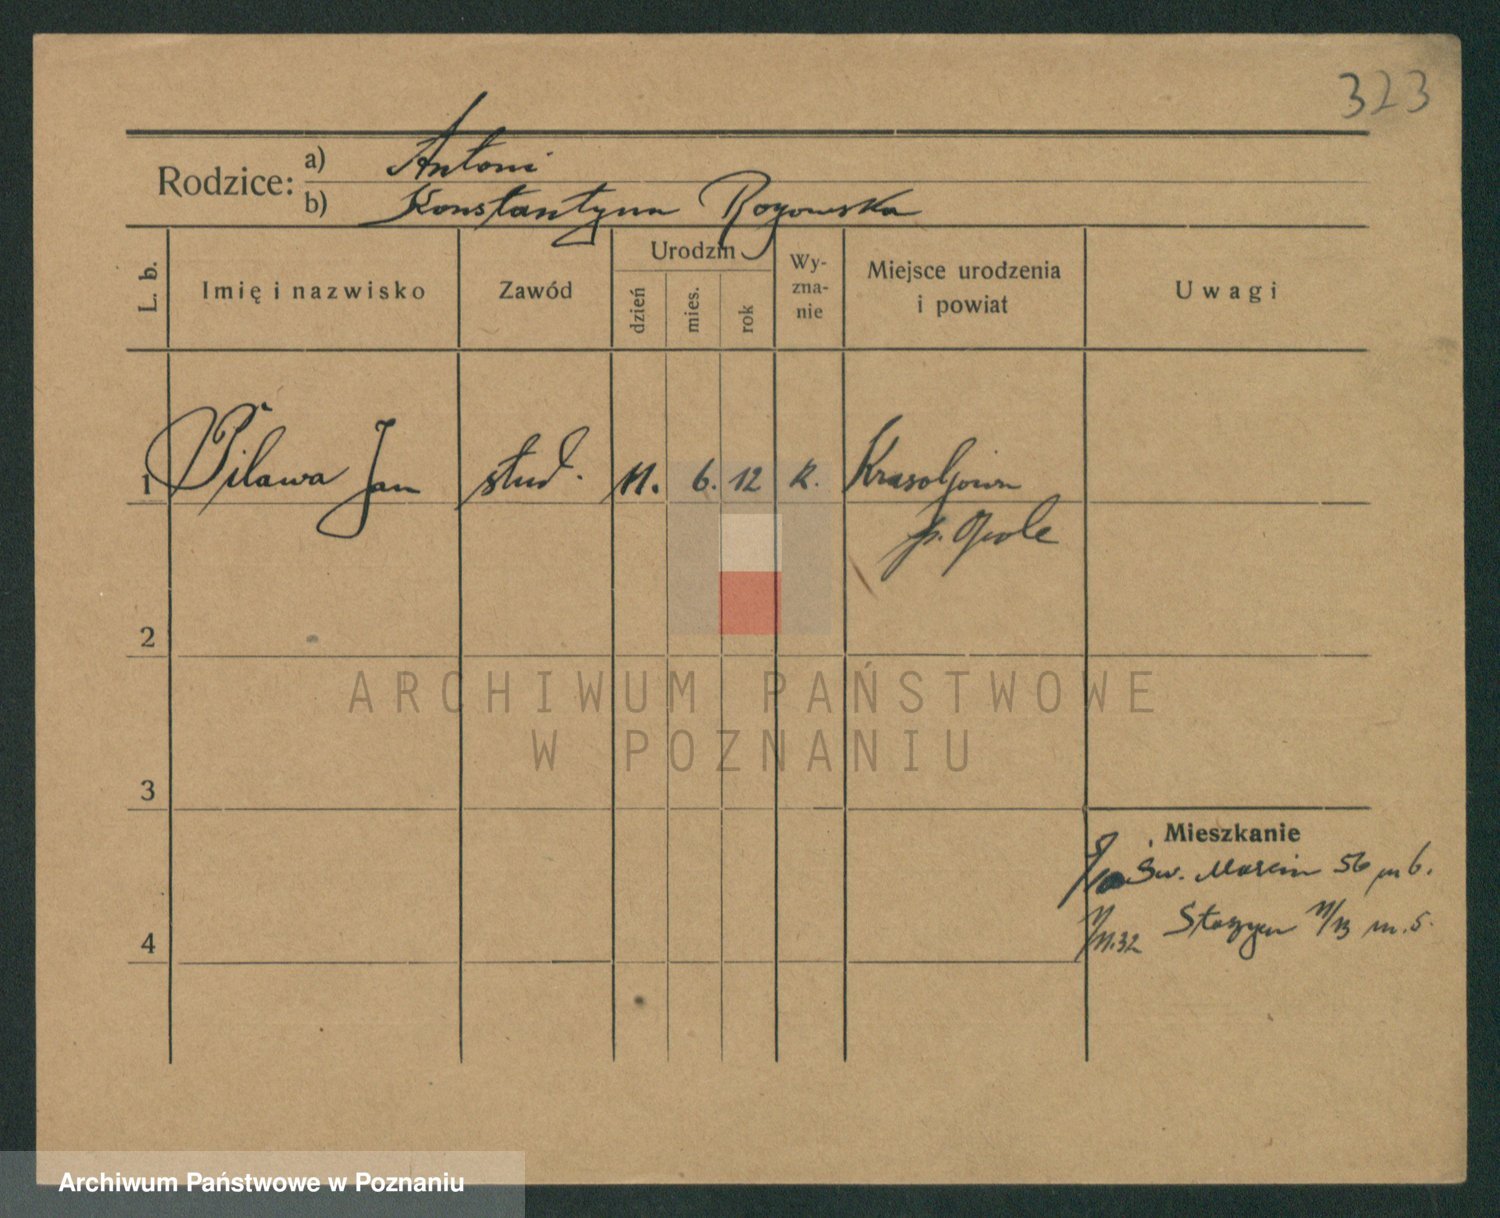 323
Rodzice: a) Antoni
b) Konstantyna Rogowska
L. b. Imię i nazwisko Zawód Urodzin dzień mies. rok Wy-zna-nie Miejsce urodzenia i powiat Uwagi
1 Pilawa Jan stud. 11. 6. 12 k.
p. Opole
2
ARCHIWUM PAŃSTWOWE
W POZNANIU
3
Mieszkanie
Św. Marcin 56 m 6.
4
11/11.32 11/13 m. 5.
Archiwum Państwowe w Poznaniu